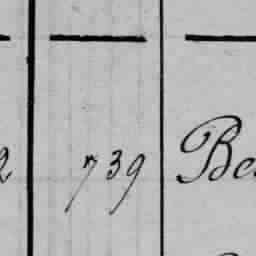 2 739 Be